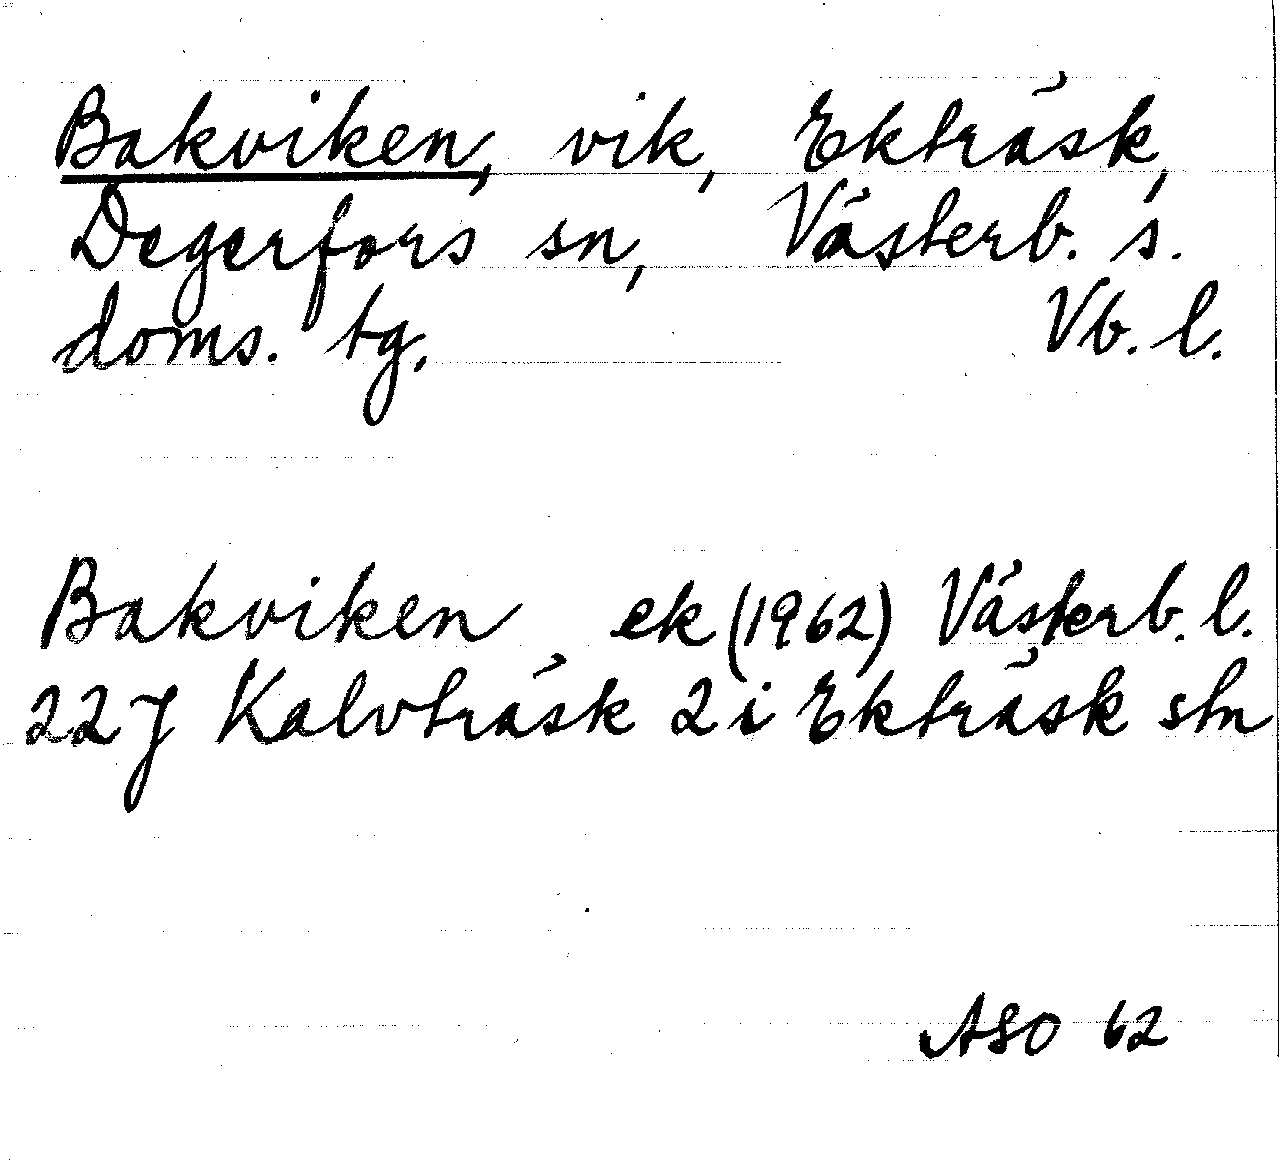 Bakviken, vik, Ekträsk,
Degerfors sn, Västerb. s.
doms. tg. Vb. l.
Bakviken ek (1962) Västerb. l.
22J Kalvträsk 2 i Ekträsk stn
ASO 62